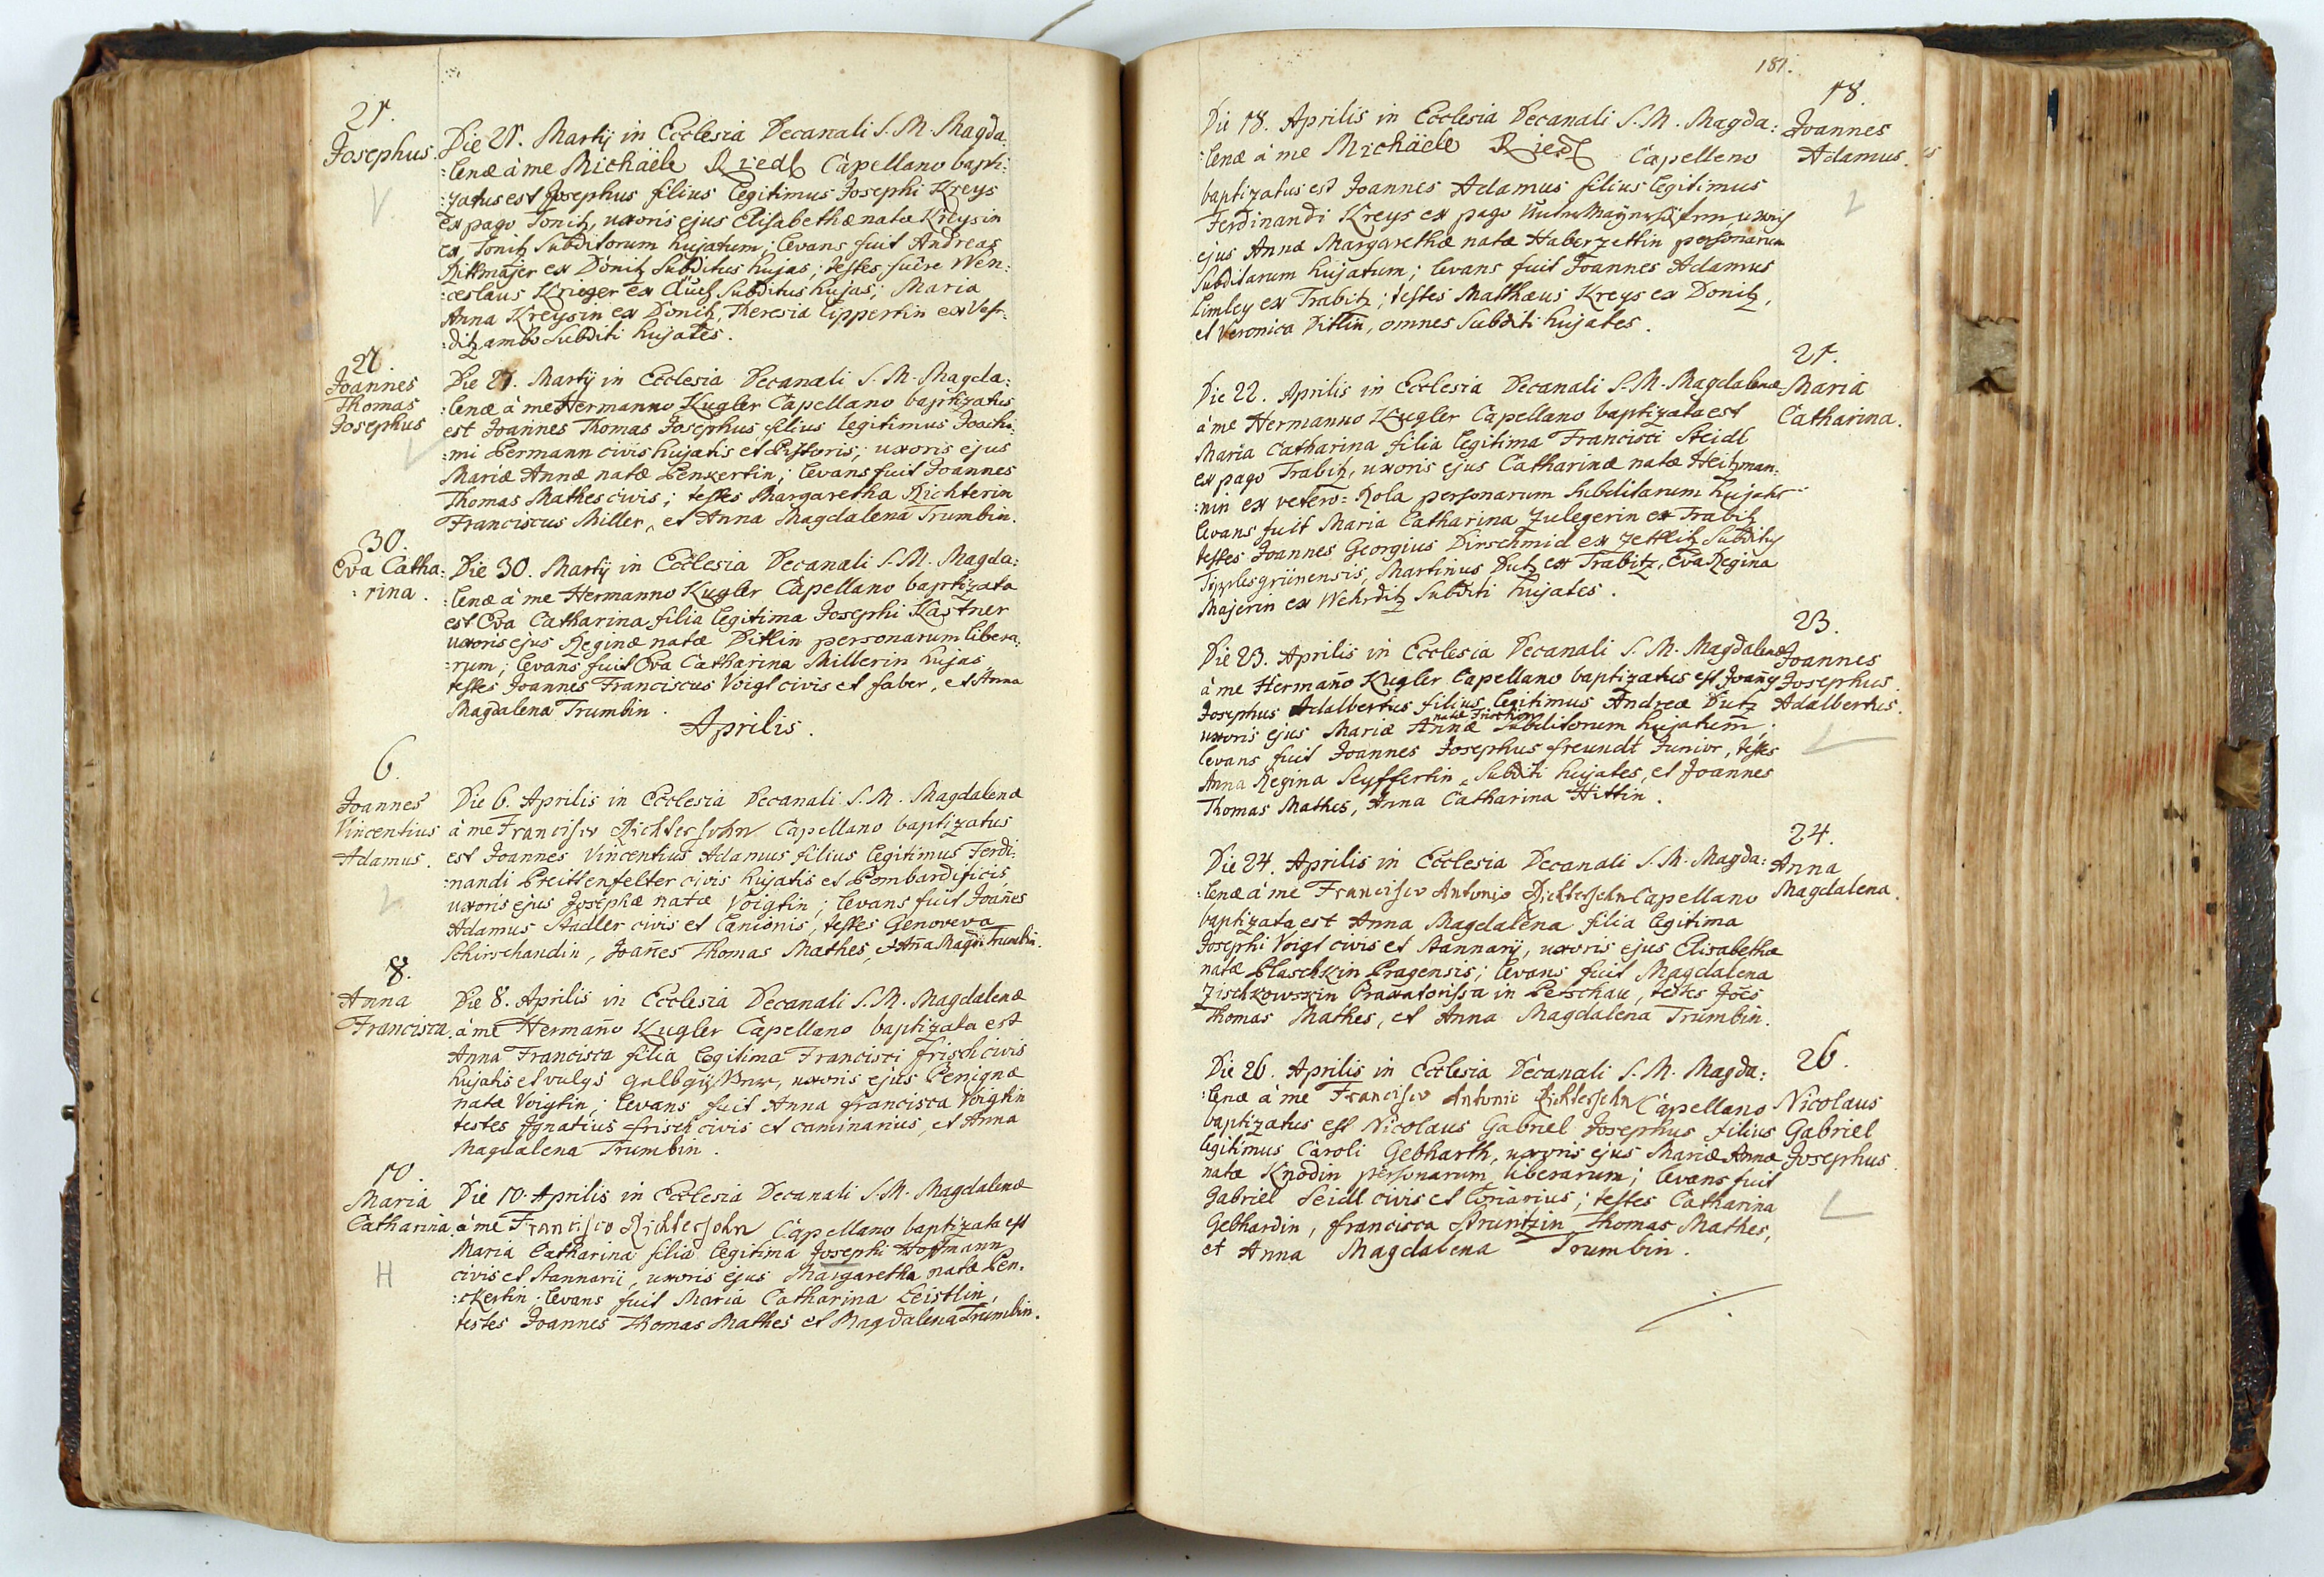 21.
Josephus.
Die 21. Martij in Ecclesia Decanali S. M. Magda:
:lenæ à me Michäele Riedl Capellano bapti:
:zatus est Josephus filius legitimus Josephi Kreys
ex pago Tonitz, uxoris ejus Elisabethæ natæ Kreysin
ex Tonitz subditorum hujatum; levans fuit Andreas
Rittmajer ex Donitz subditus hujas; testes fuêre Wen:
:ceslaus Krieger ex subditus hujas; Maria
Anna Kreysin ex Donitz, Theresia Lippertin ex Vehr:
:ditz ambo subditi hujates.
27.
Joannes
Thomas
Josephus
Die 27. Martij in Ecclesia Decanali S. M. Magda:
:lenæ à me Hermanno Kugler Capellano baptizatus
est Joannes Thomas Josephus filius legitimus Joachi:
:mi Permann civis hujatis et Pistoris, uxoris ejus
Mariæ Annæ natæ Penkertin; levans fuit Joannes
Thomas Mathes civis; testes Margaretha Richterin
Franciscus Miller, et Anna Magdalena Trumbin.
30.
Eva Catha:
:rina.
Die 30. Martij in Ecclesia Decanali S. M. Magda:
:lenæ à me Hermanno Kugler Capellano baptizata
est Eva Catharina filia legitima Josephi Kastner
uxoris ejus Reginæ natæ Ditlin personarum libera:
:rum; levans fuit Eva Catharina Millerin hujas
testes Joannes Franciscus Voigt civis et faber, et Anna
Magdalena Trumbin.
Aprilis.
6.
Joannes
Vincentius
Adamus.
Die 6. Aprilis in Ecclesia Decanali S. M. Magdalenæ
à me Francisco Richtersohn Capellano baptizatus
est Joannes Vincentius Adamus filius legitimus Ferdi:
:nandi Breittenfelter civis hujatis et Bombardificis,
uxoris ejus Josephæ natæ Voigtin; levans fuit Joañes
Adamus Stadler civis et Lanionis, testes Genoveva
Schirschandin, Joañes Thomas Mathes, et Aña Magd: Trumbin.
8.
Anna
Francisca.
Die 8. Aprilis in Ecclesia Decanali S. M. Magdalenæ
à me Hermaño Kugler Capellano baptizata est
Anna Francisca filia legitima Francisci Frisch civis
hujatis et vulgo , uxoris ejus Benignæ
natæ Voigtin; levans fuit Anna Francisca Voigtin
testes Ignatius Frisch civis et caminarius, et Anna
Magdalena Trumbin.
10.
Maria
Catharina.
Die 10. Aprilis in Ecclesia Decanali S. M. Magdalenæ
à me Francisco Richtersohn Capellano baptizata est
Maria Catharina filia legitima Josephi Hoffmann
civis et Stannarii, uxoris ejus Margaretha natæ Pen:
:ckertin. levans fuit Maria Catharina Leistlin,
testes Joannes Thomas Mathes et Magdalena Trumbin.
H
181.
18.
Joannes
Adamus.
Die 18. Aprilis in Ecclesia Decanali S. M. Magda:
:lenæ à me Michäele Riedl Capelleno
baptizatus est Joannes Adamus filius legitimus
Ferdinandi Kreys ex pago , uxoris
ejus Annæ Margarethæ natæ Haberzettin personarum
subditarum hujatum; levans fuit Joannes Adamus
Limley ex Trabitz; testes Mathæus Kreys ex Donitz,
et Veronica Ditlin, omnes subditi hujates.
21.
Maria
Catharina.
Die 22. Aprilis in Ecclesia Decanali S. M. Magdalenæ
à me Hermanno Kugler Capellano baptizata est
Maria Catharina filia legitima Francisci Steidl
ex pago Trabitz, uxoris ejus Catharinæ natæ Heitzman:
:nin ex vetero: Rola personarum subditarum hujatū
levans fuit Maria Catharina Zulegerin ex Trabitz
testes Joannes Georgius Dirschmid ex Zettlitz subditus
Tipplesgrünensis, Martinus Dutz ex Trabitz, Eva Regina
Majerin ex Wehrditz subditi hujates.
23.
Joannes
Josephus
Adalbertus.
Die 23. Aprilis in Ecclesia Decanali S. M. Magdalenæ
à me Hermaño Kugler Capellano baptizatus est Joañes
Josephus Adalbertus filius legitimus Andreæ Dutz
natæ Frischin
uxoris ejus Mariæ Annæ subditorum hujatum̄;
levans fuit Joannes Josephus Freundt Junior, testes
Anna Regina Seyffertin, subditi hujates, et Joannes
Thomas Mathes, Anna Catharina Hittin.
24.
Anna
Magdalena.
Die 24. Aprilis in Ecclesia Decanali S. M. Magda:
:lenæ à me Francisco Antonio Richtersohn Capellano
baptizata est Anna Magdalena filia legitima
Josephi Voigt civis et Stannarij, uxoris ejus Elisabethæ
natæ Blaschkin Pragensis; levans fuit Magdalena
Zischkowskin Braxatorissa in Petschau, testes Jōes
Thomas Mathes, et Anna Magdalena Trumbin.
26.
Nicolaus
Gabriel
Josephus.
Die 26. Aprilis in Ecclesia Decanali S. M. Magda:
:lenæ à me Francisco Antonio Richtersohn Capellano
baptizatus est Nicolaus Gabriel Josephus filius
legitimus Caroli Gebharth, uxoris ejus Mariæ Annæ
natæ Knodin personarum liberarum; levans fuit
Gabriel Seidl civis et Coriarius; testes Catharina
Gebhardin, Francisca Struntzin Thomas Mathes,
et Anna Magdalena Trumbin.